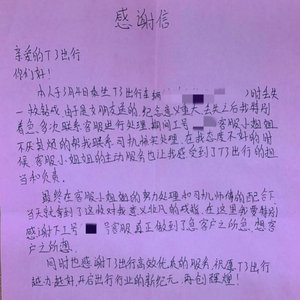 感谢信
亲爱的T3出行
你们好！
本人于3月4日乘坐T3出行车辆 )时丢失
一枚戒指，由于是女朋友送的，纪念意义重大，丢失之后我特别
着急，多次联系客服进行处理，期间工号 客服小姐姐
不厌其烦的帮我联系司机核实处理，在我态度不好的时
候，客服小姐姐的主动服务也让我感受到了T3出行的担
当和负责。
最终在客服小姐姐的努力处理和司机师傅的配合下
当天就拿到了这枚对我意义非凡的戒指，在这里我要特别
感谢下工号 号客服真正做到了急客户之所急，想客
户之所想。
同时也感谢T3出行高效优质的服务，祝愿T3出行
越办越好，开启出行行业的新纪元，再创辉煌！